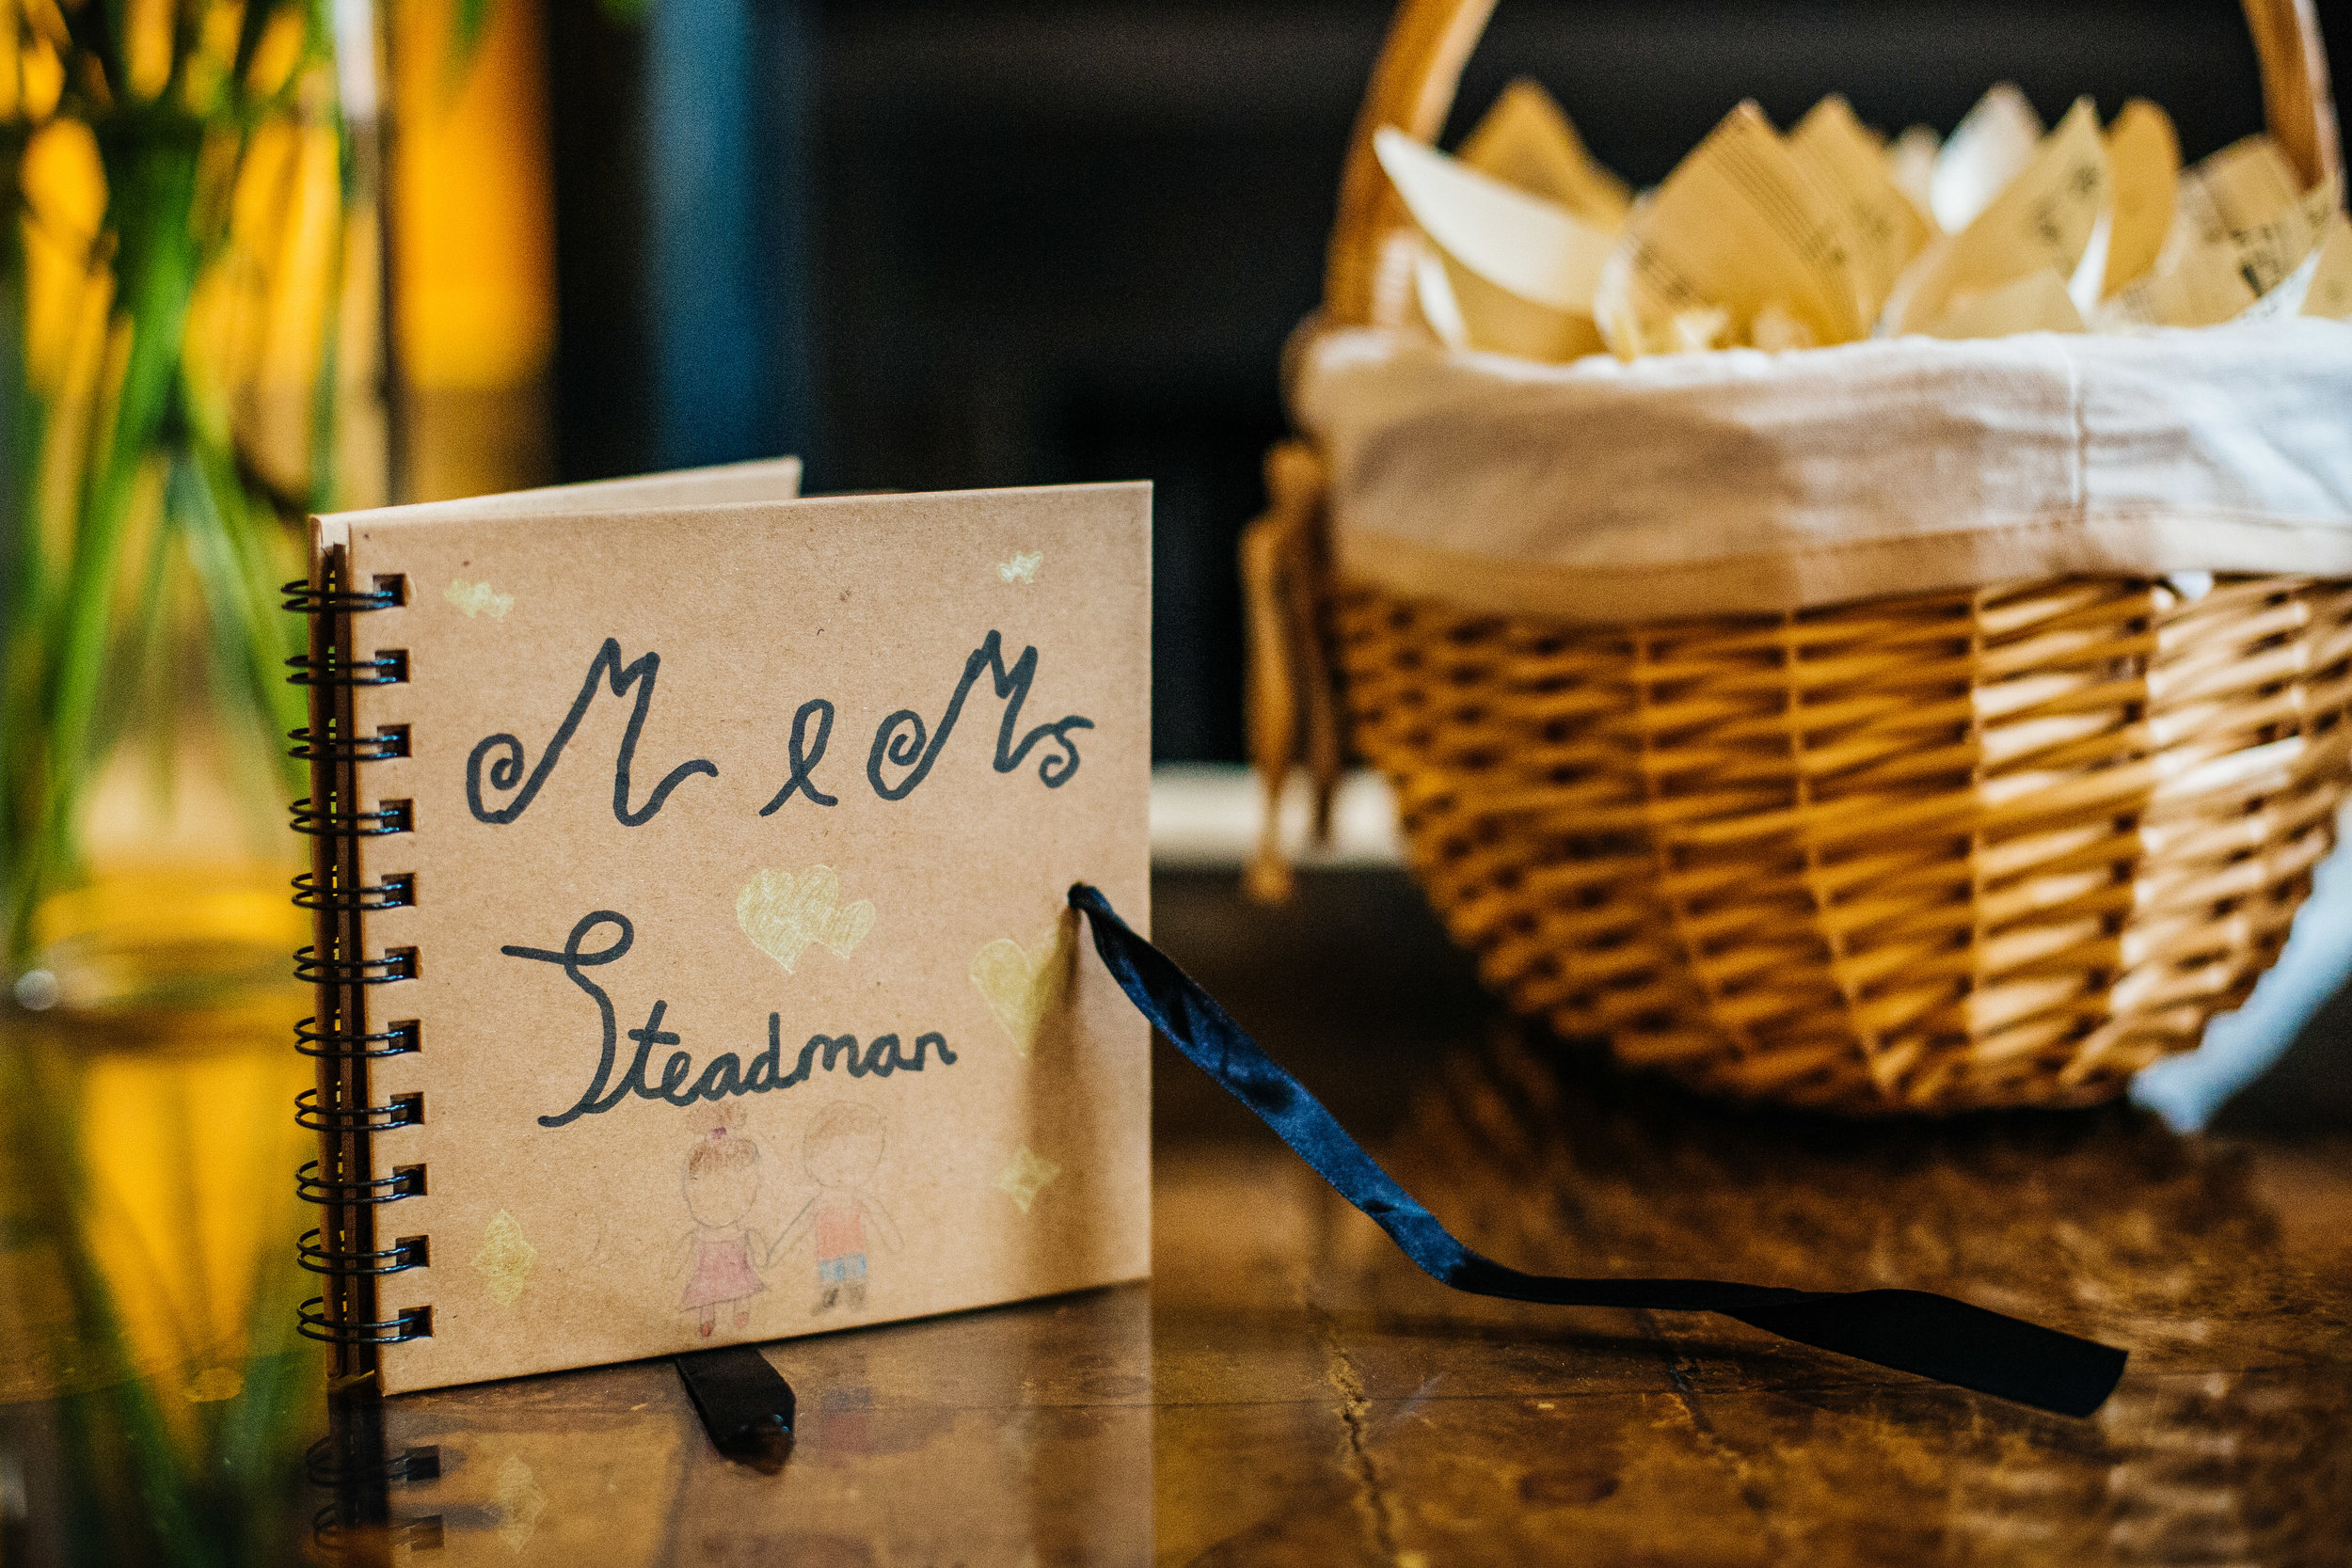 M & Ms
Steadman